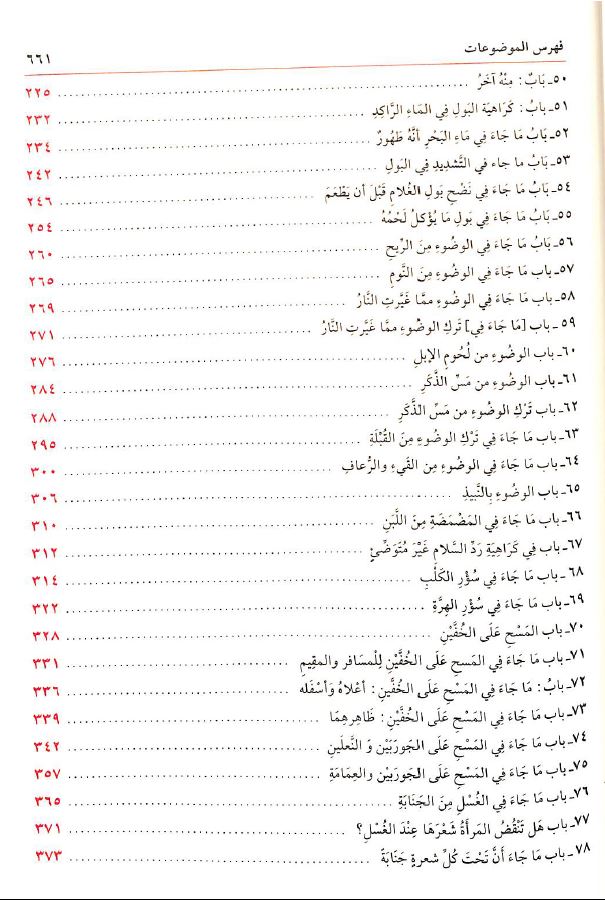 فهرس الموضوعات ٦٦١
٥٠ـ بَابٌ: مِنْهُ آخَرُ ........ ٢٢٥
٥١ـ بابُ: كَرَاهِيَة البَولِ فِي المَاءِ الرَّاكِدِ ........ ٢٣٢
٥٢ـ بَابُ مَا جَاءَ فِي مَاءِ البَحْرِ أنَّهُ طَهُورٌ ........ ٢٣٤
٥٣ـ بَابُ ما جاء في التَّشدِيدِ فِي البَولِ ........ ٢٤٢
٥٤ـ بَابُ مَا جَاءَ فِي نَضْحِ بَولِ الغُلَامِ قَبْلَ أن يَطْعَمَ ........ ٢٤٦
٥٥ـ بَابُ مَا جَاءَ فِي بَولِ مَا يُؤْكَلُ لَحْمُهُ ........ ٢٥٤
٥٦ـ بَابُ مَا جَاءَ فِي الوضُوءِ مِنَ الرِّيحِ ........ ٢٦٠
٥٧ـ باب مَا جَاءَ فِي الوضُوءِ مِنَ النَّومِ ........ ٢٦٥
٥٨ـ باب مَا جَاءَ فِي الوضُوءِ ممَّا غَيَّرتِ النَّارُ ........ ٢٦٩
٥٩ ـ باب [مَا جَاءَ فِي] تَركِ الوضُوءِ ممَّا غَيَّرتِ النَّارُ ........ ٢٧١
٦٠ـ باب الوضُوءِ من لُحُومِ الإبلِ ........ ٢٧٦
٦١ـ باب الوضُوءِ من مَسِّ الذَّكَرِ ........ ٢٨٤
٦٢ـ باب تَرْكِ الوضُوءِ من مَسِّ الذَّكَرِ ........ ٢٨٨
٦٣ـ باب مَا جَاءَ فِي تَرْكِ الوضُوءِ مِنَ القُبْلَةِ ........ ٢٩٥
٦٤ـ باب مَا جَاءَ فِي الوضُوءِ مِن القَيءِ والرُّعافِ ........ ٣٠٠
٦٥ـ باب الوضُوءِ بِالنَّبيذِ ........ ٣٠٦
٦٦ـ باب مَا جَاءَ فِي المَضْمَضَةِ مِنَ اللَّبَنِ ........ ٣١٠
٦٧ـ باب فِي كَرَاهِيَةِ رَدِّ السَّلامِ غَيْرَ مُتَوَضِّئٍ ........ ٣١٢
٦٨ـ باب مَا جَاءَ فِي سُؤْرِ الكَلْبِ ........ ٣١٤
٦٩ـ باب مَا جَاءَ فِي سُؤْرِ الهِرَّةِ ........ ٣٢٢
٧٠ـ باب المَسْحِ عَلَى الخُفَّيْنِ ........ ٣٢٨
٧١ـ باب مَا جَاءَ فِي المَسحِ عَلَى الخُفَّيْنِ لِلْمسَافر والمقِيمِ ........ ٣٣١
٧٢ـ بابُ: مَا جَاءَ فِي المَسْحِ عَلَى الخُفَّينِ: أعْلاهُ وَأسْفَله ........ ٣٣٦
٧٣ـ باب مَا جَاءَ فِي المَسْحِ عَلَى الخُفَّيْنِ: ظَاهِرِهِمَا ........ ٣٣٩
٧٤ـ باب مَا جَاءَ فِي المَسْحِ عَلَى الجَورَبَيْنِ وَ النَّعلَينِ ........ ٣٤٢
٧٥ـ باب مَا جَاءَ فِي المَسْحِ عَلَى الجَورَبَيْنِ والعِمَامَةِ ........ ٣٥٧
٧٦ـ باب مَا جَاءَ فِي الغُسْلِ مِنَ الجَنَابَةِ ........ ٣٦٥
٧٧ـ باب هَل تَنْقُضُ المَرأَةُ شَعْرَهَا عِنْدَ الغُسْلِ؟ ........ ٣٧١
٧٨ـ باب مَا جَاءَ أنَّ تَحْتَ كُلِّ شعرةٍ جَنَابَةً ........ ٣٧٣